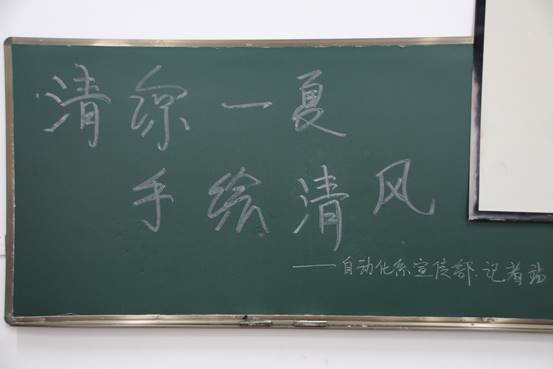 清凉一夏
手绘清风
——自动化系宣传部.记者站